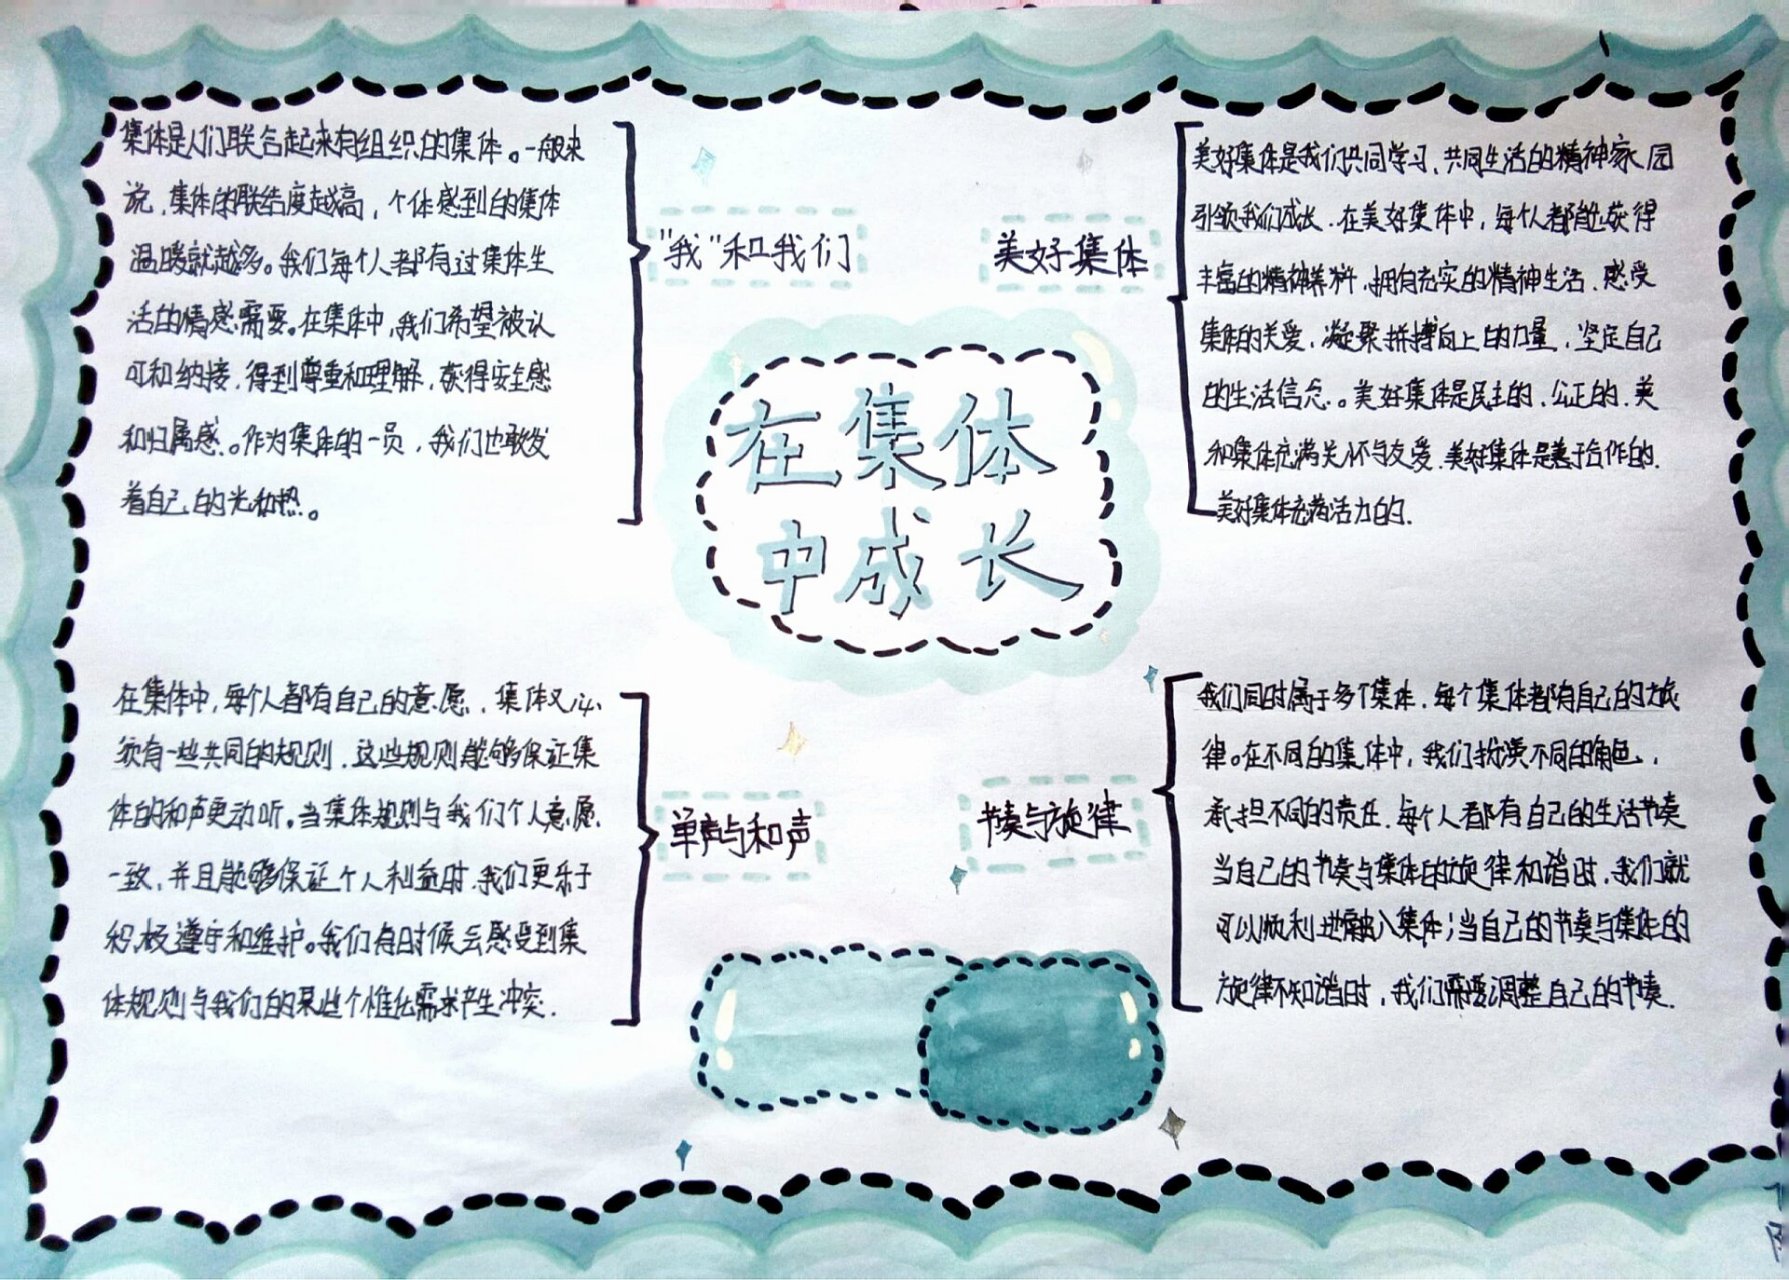 集体是人们联合起来有组织的集体。一般来
说,集体的联结度越高,个体感到的集体
温暖就越多。我们每个人都有过集体生
活的情感需要。在集体中,我们希望被认
可和纳接,得到尊重和理解,获得安全感
和归属感。作为集体的一员,我们也散发
着自己的光和热。
"我"和我们
美好集体
美好集体是我们共同学习、共同生活的精神家园
引领我们成长.在美好集体中,每个人都能获得
丰富的精神养料,拥有充实的精神生活,感受
集体的关爱,凝聚拼搏向上的力量,坚定自己
的生活信念。美好集体是民主的,公正的.美
和集体充满关怀与友爱.美好集体是善于合作的.
美好集体充满活力的.
在集体
中成长
在集体中,每个人都有自己的意愿,集体又必
须有一些共同的规则.这些规则能够保证集
体的和声更动听。当集体规则与我们个人意愿
一致,并且能够保证个人利益时.我们更乐于
积极遵守和维护。我们有时候会感受到集
体规则与我们的某些个性化需求产生冲突.
单声与和声
节奏与旋律
我们同时属于多个集体.每个集体都有自己的旋
律。在不同的集体中,我们扮演不同的角色,
承担不同的责任.每个人都有自己的生活节奏
当自己的节奏与集体的旋律和谐时,我们就
可以顺利地融入集体;当自己的节奏与集体的
旋律不和谐时,我们需要调整自己的节奏.